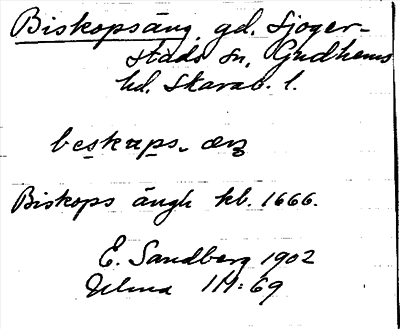 Biskopsäng, gd. Sjoger-
stads sn, Gudhems
hd. Skarab. l.
beskaps. æŋ
Biskops ängh hb. 1666.
E. Sandberg 1902
Ulma 1M: 69